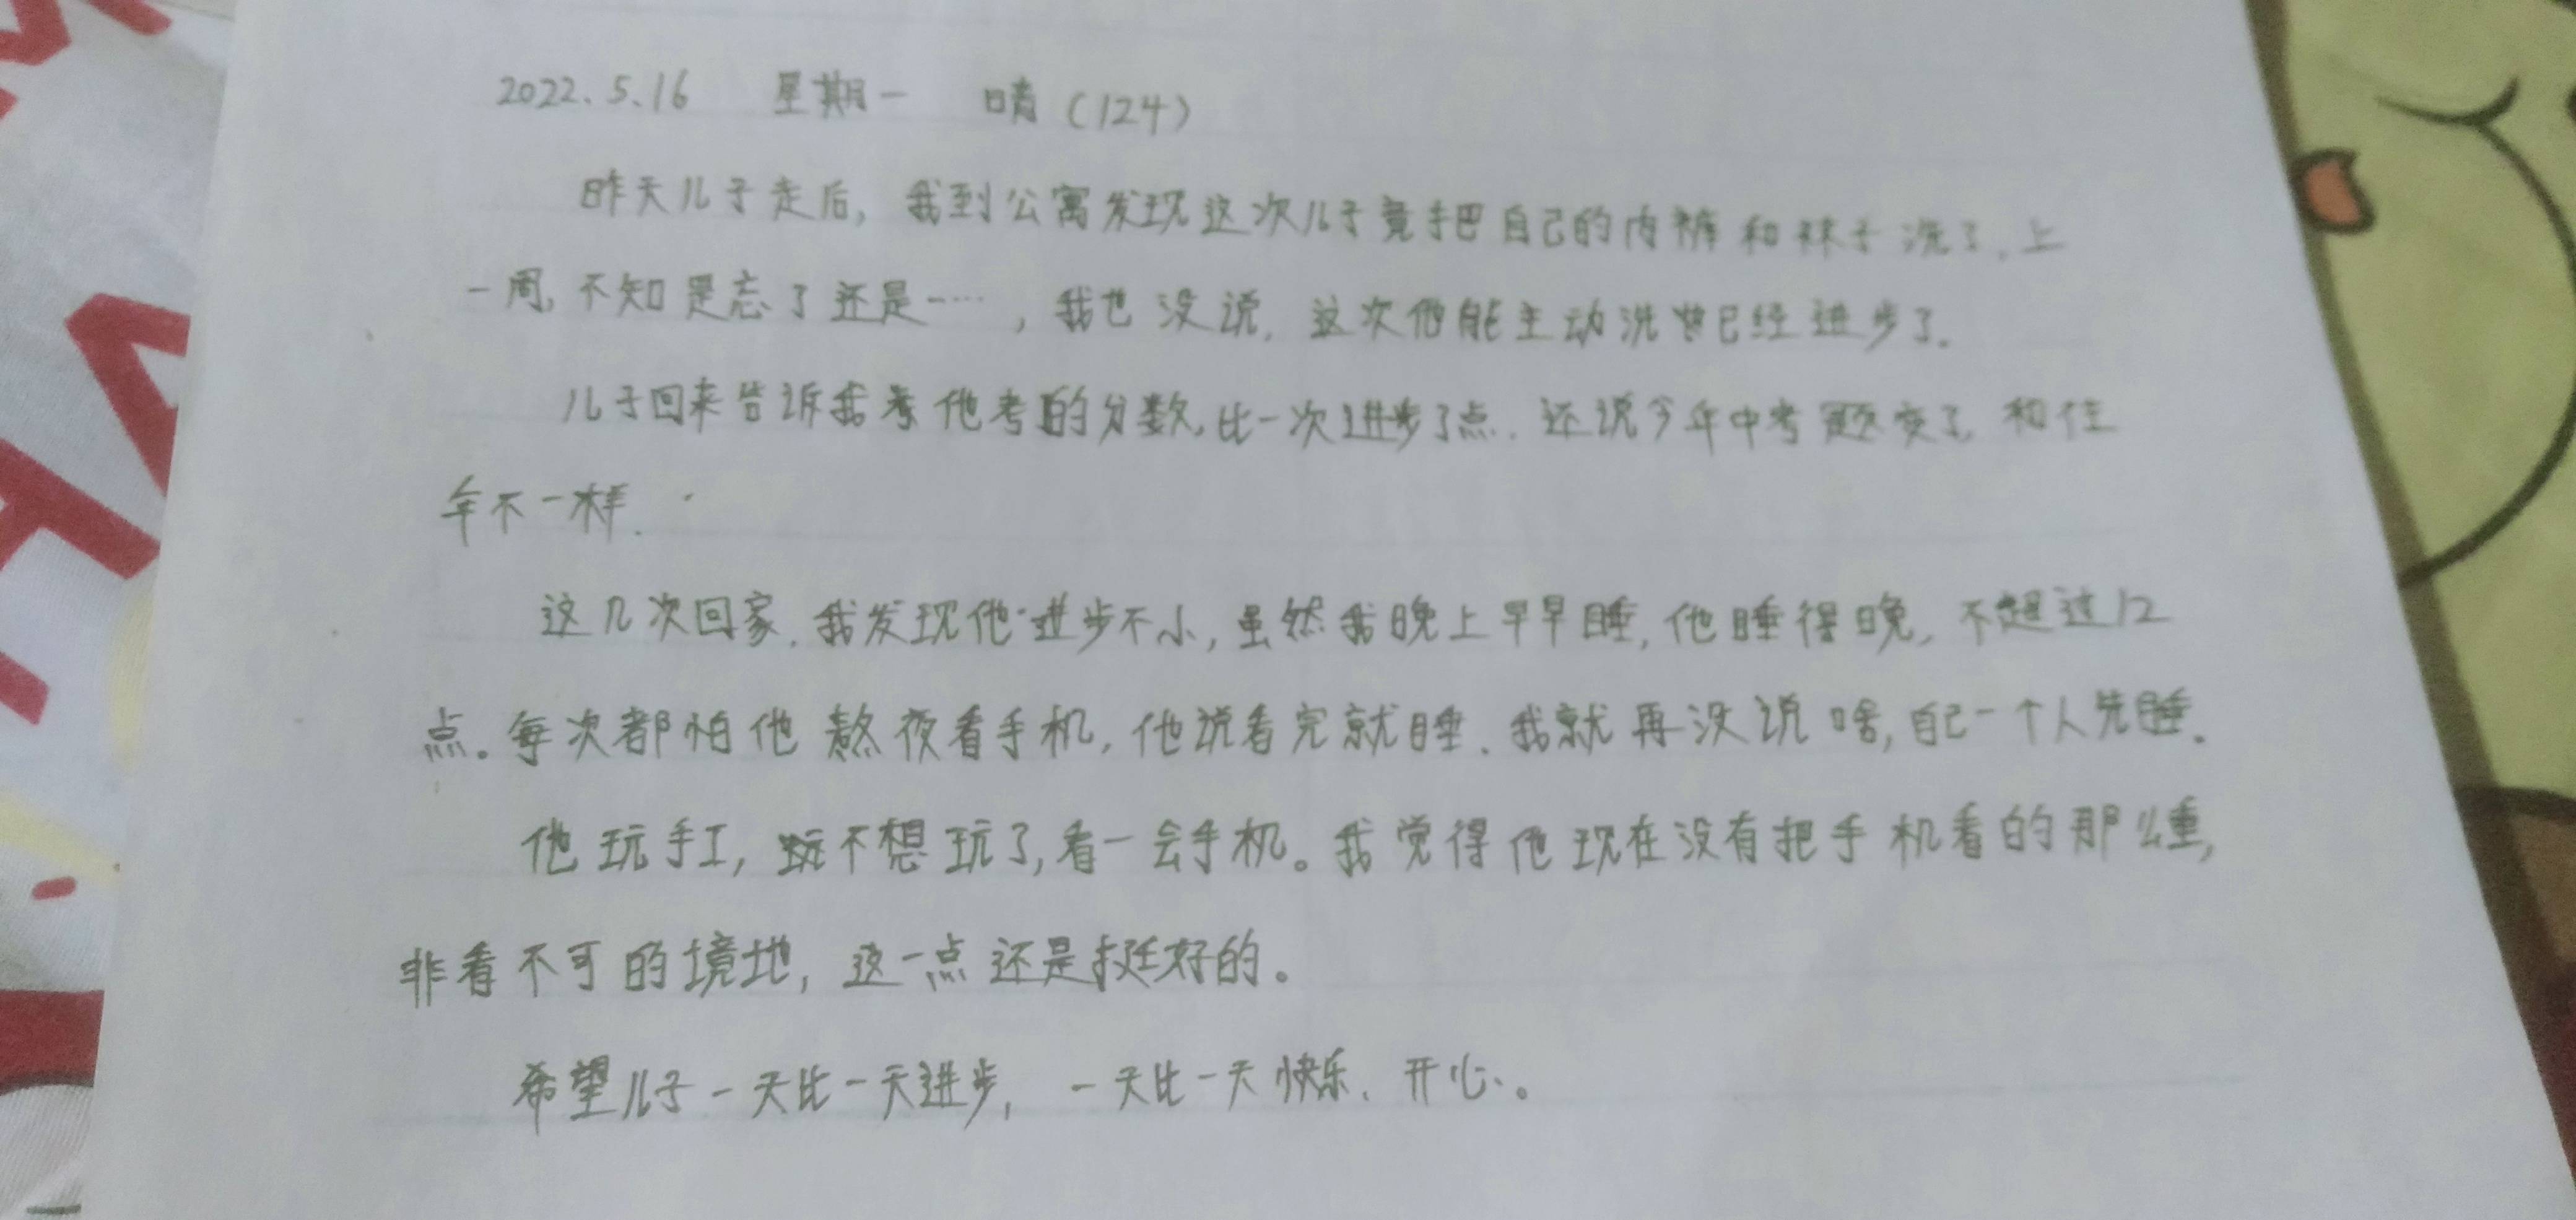 2022.5.16 星期一 晴(124)
昨天儿子走后,我到公寓发现这次儿子竟把自己的内裤和袜子洗了,上
一周,不知是忘了还是……,我也没说,这次他能主动洗也已经进步了.
儿子回来告诉我 他考的分数,比一次进步了点.还说今年中考题变了,和往
年不一样.
这几次回家,我发现他进步不小,虽然我晚上早早睡,他睡得晚,不超过12
点。每次都怕他熬夜看手机,他说看完就睡.我就再没说啥,自己一个人先睡.
他玩手工,玩不想玩了,看一会手机。我觉得他现在没有把手机看的那么重,
非看不可的境地,这一点还是挺好的。
希望儿子一天比一天进步,一天比一天快乐、开心。